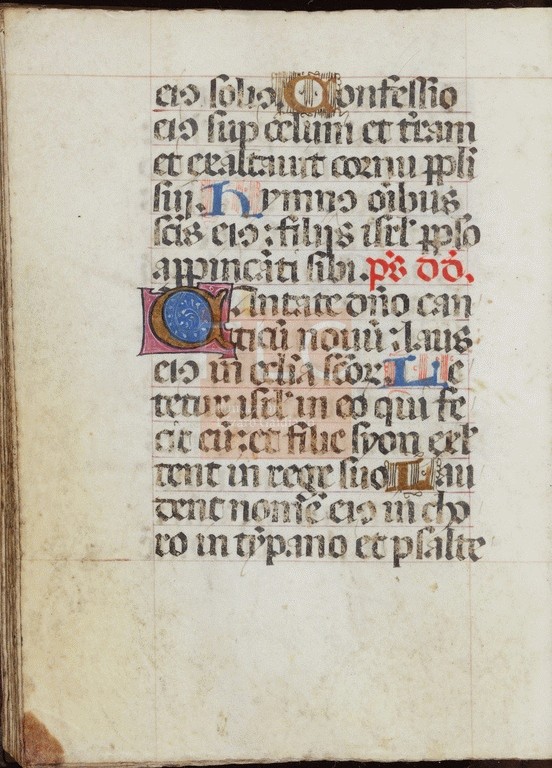 eiꝰ soliꝰ. Confessio
eiꝰ sup celum et t̄ram
et exaltauit cornu ppli
sui. Hymnꝰ oībus
scīs eiꝰ: filijs isrl̄ pplo
appinq̄āti sibi. ps̄ dd̄.
Cantate dn̄o can
ticū nouū: laus
eiꝰ in ecclīa sc̄or. Le
tetur isrl̄ in eo qui fe
cit eū: et filie syon exl̄
tent in rege suo. Lau
dent nomē eiꝰ in cho
ro in tȳpano et psalte